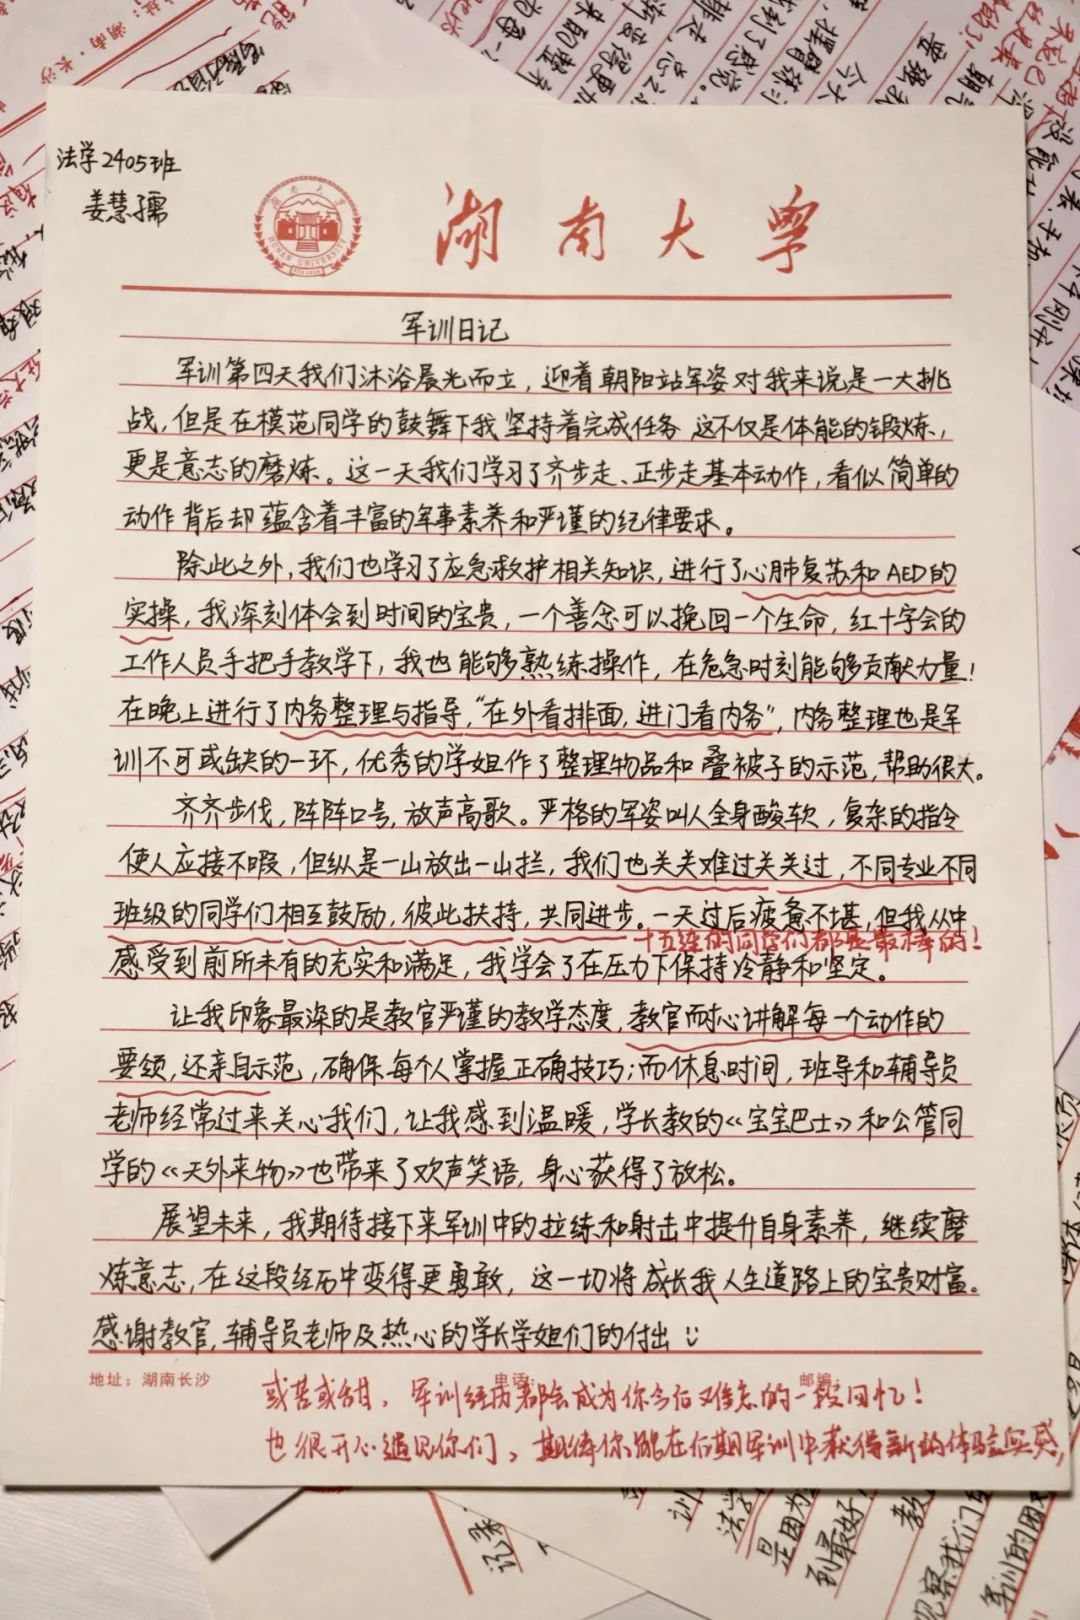 法学2405班
姜慧孺
湖南大学
HUNAN UNIVERSITY
军训日记
军训第四天我们沐浴晨光而立，迎着朝阳站军姿对我来说是一大挑
战，但是在模范同学的鼓舞下我坚持着完成任务 这不仅是体能的锻炼，
更是意志的磨炼。这一天我们学习了齐步走、正步走基本动作，看似简单的
动作背后却蕴含着丰富的军事素养和严谨的纪律要求。
除此之外，我们也学习了应急救护相关知识，进行了心肺复苏和AED的
实操，我深刻体会到时间的宝贵，一个善念可以挽回一个生命，红十字会的
工作人员手把手教学下，我也能够熟练操作，在危急时刻能够贡献力量！
在晚上进行了内务整理与指导，“在外看排面，进门看内务”，内务整理也是军
训不可或缺的一环，优秀的学姐作了整理物品和叠被子的示范，帮助很大。
齐齐步伐，阵阵口号，放声高歌。严格的军姿叫人全身酸软，复杂的指令
使人应接不暇，但纵是一山放出一山拦，我们也关关难过关关过，不同专业不同
班级的同学们相互鼓励，彼此扶持，共同进步。一天过后疲惫不堪，但我从中
十五连的同学们都是最棒的！
感受到前所未有的充实和满足，我学会了在压力下保持冷静和坚定。
让我印象最深的是教官严谨的教学态度，教官耐心讲解每一个动作的
要领，还亲自示范，确保每个人掌握正确技巧；而休息时间，班导和辅导员
老师经常过来关心我们，让我感到温暖，学长教的《宝宝巴士》和公管同
学的《天外来物》也带来了欢声笑语，身心获得了放松。
展望未来，我期待接下来军训中的拉练和射击中提升自身素养，继续磨
炼意志，在这段经历中变得更勇敢，这一切将成长我人生道路上的宝贵财富。
感谢教官，辅导员老师及热心的学长学姐们的付出
地址：湖南长沙
电话：
邮编：
或苦或甜，军训经历都会成为你今后难忘的一段回忆！
也很开心遇见你们，期待你能在后期军训中获得新的体验与感